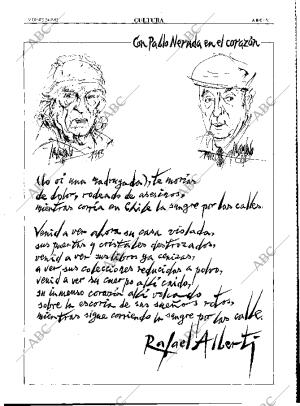 CULTURA
Con Pablo Neruda en el corazón
(lo oí una madrugada), te morías
de dolor, rodeado de asesinos,
mientras corría en Chile la sangre por las calles.
Venid a ver ahora su casa violada,
sus puertas y cristales destrozados,
venid a ver sus libros ya cenizas,
a ver sus colecciones reducidas a polvo,
venid a ver su cuerpo allí caído,
su inmenso corazón allí volcado
sobre la escoria de sus sueños rotos,
mientras sigue corriendo la sangre por las calles.
Rafael Alberti